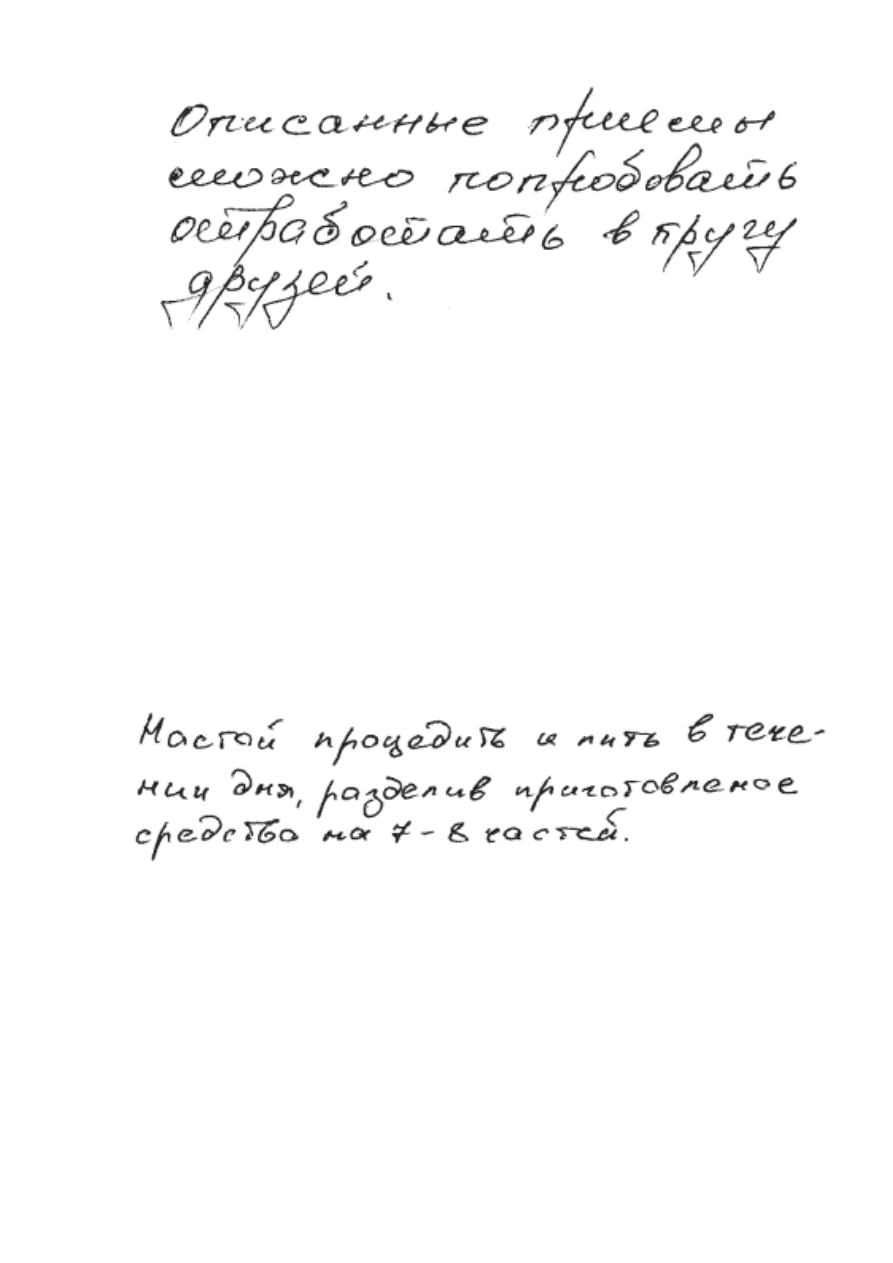 Описанные приемы
можно попробовать
отработать в кругу
друзей.
Настой процедить и пить в тече-
нии дня, разделив приготовленое
средство на 7-8 частей.